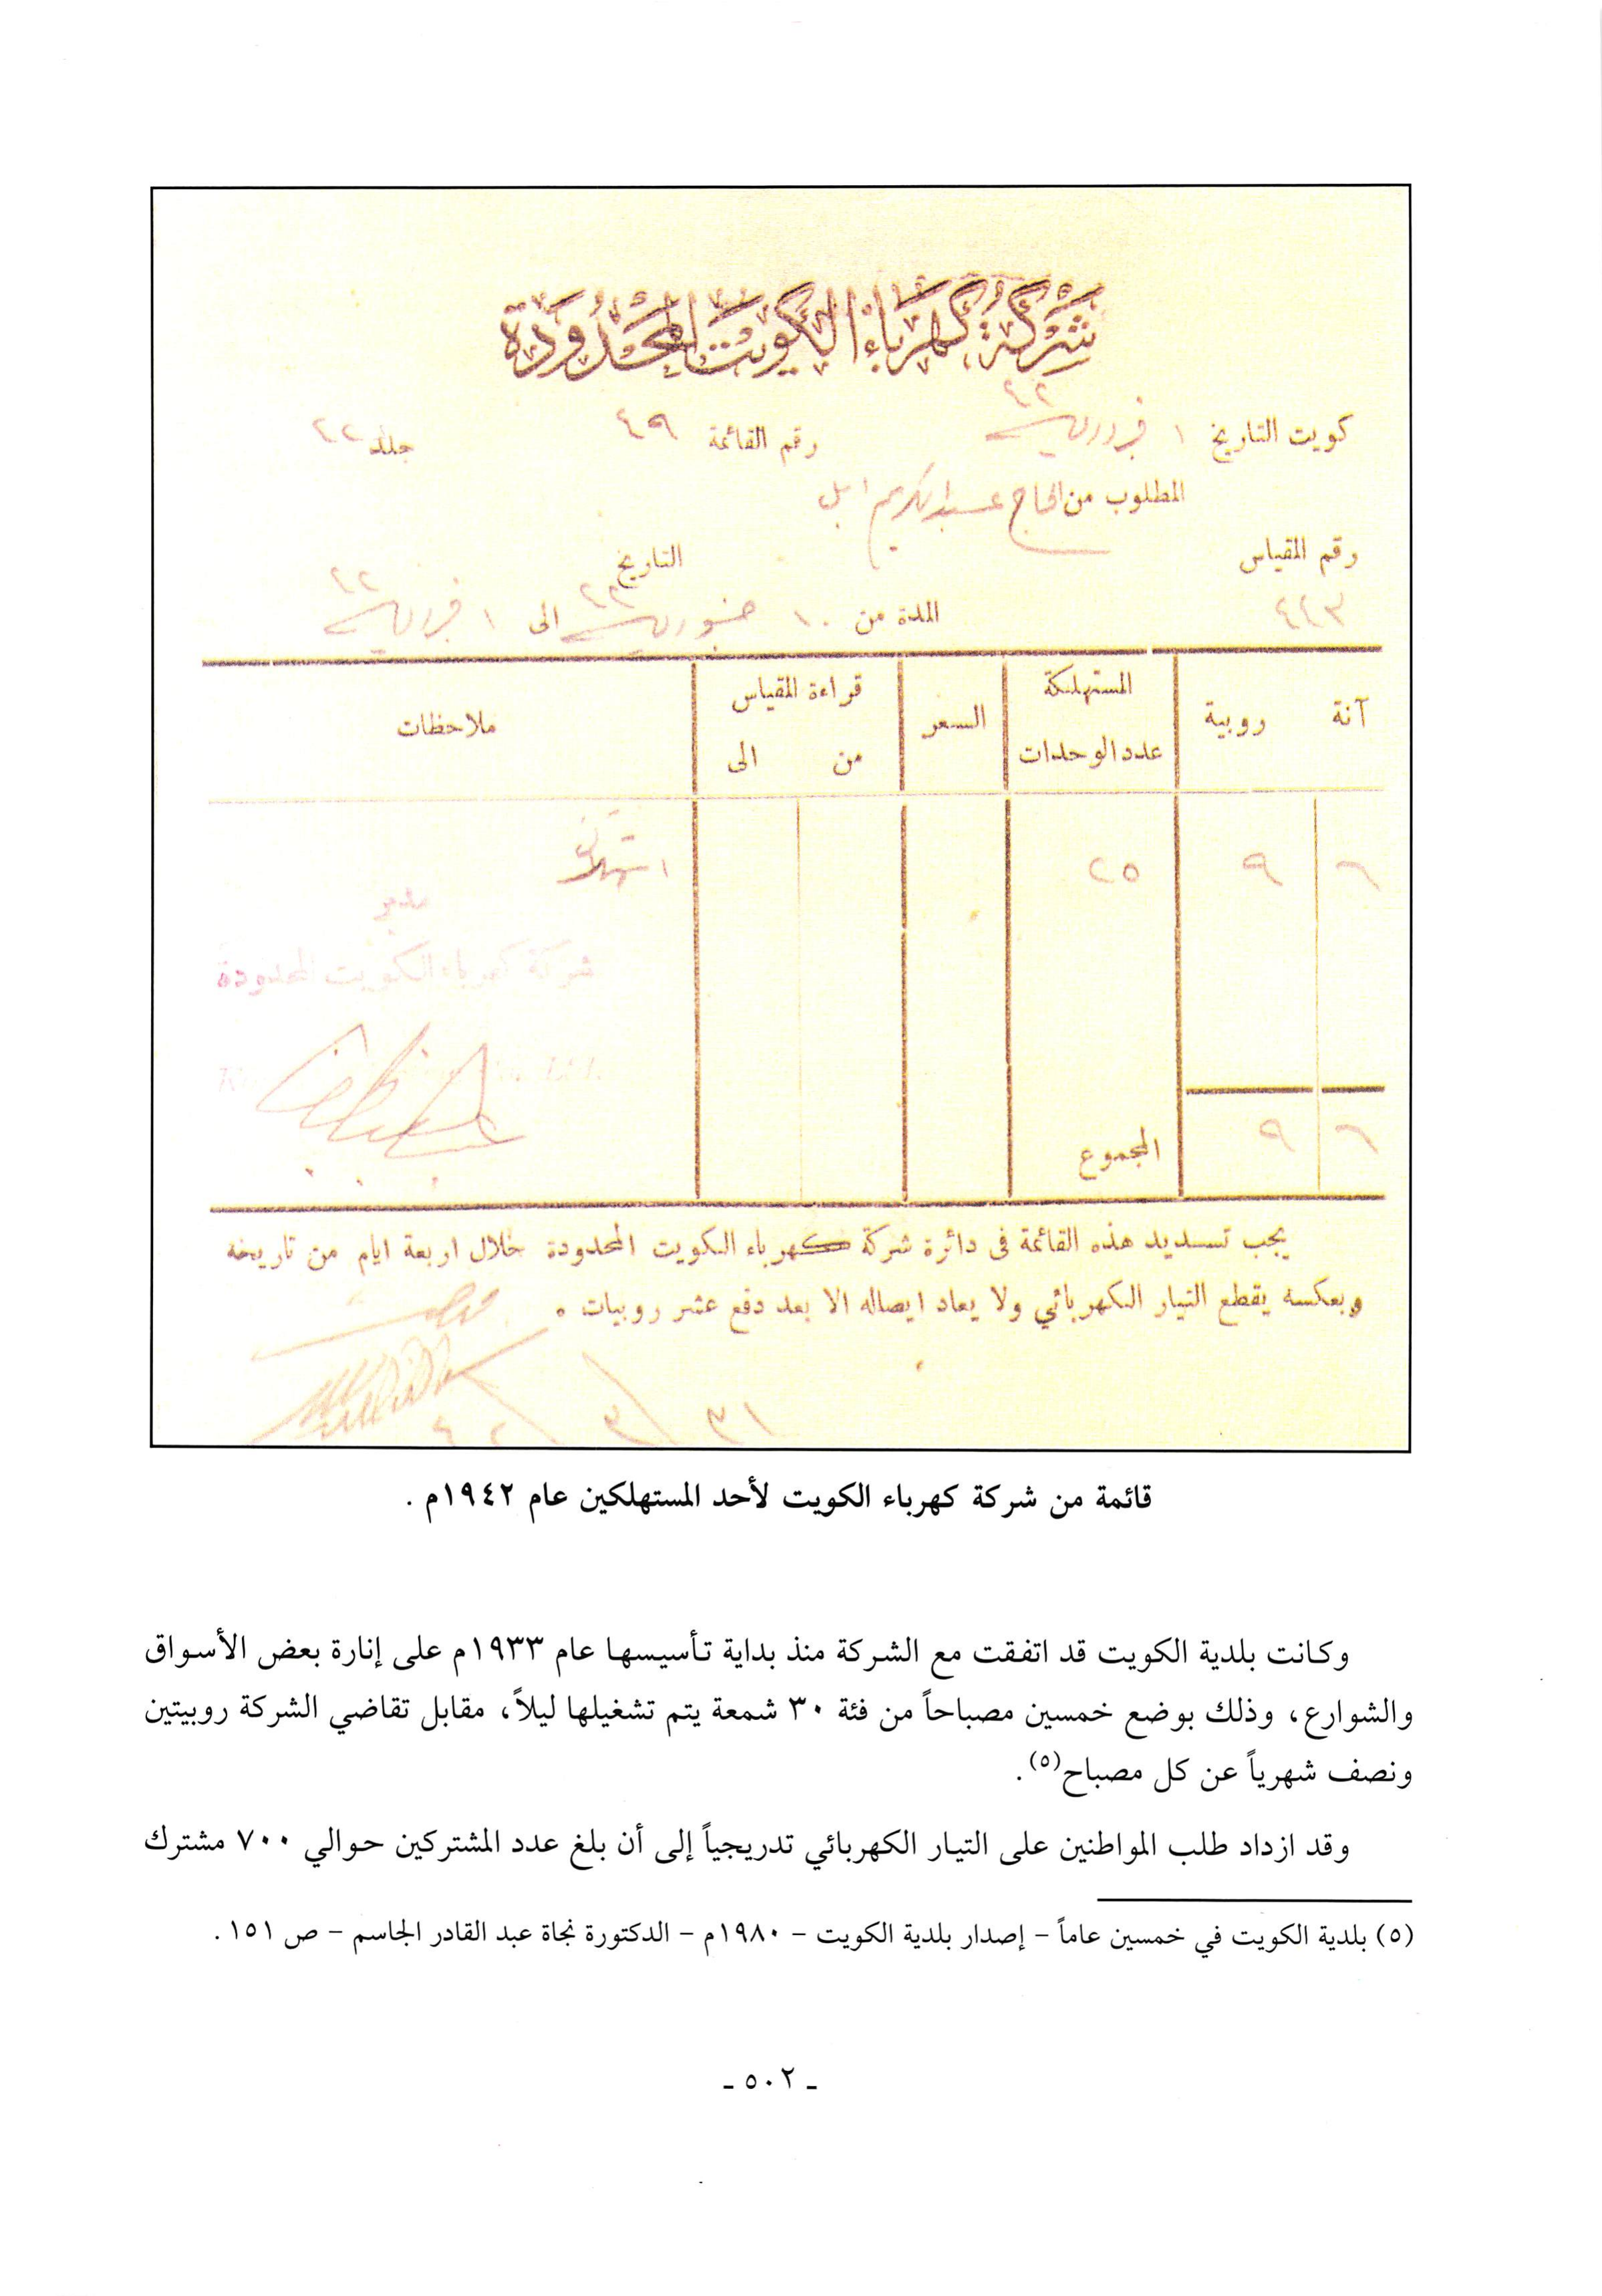 شركة كهرباء الكويت المحدودة
كويت التاريخ ١ فبروري ٤٢ رقم القائمة ٤٩ جلد ٤٢
المطلوب من الحاج عبدالكريم ابل
رقم المقياس التاريخ
٤٤٣ المدة من ١٠ جنوري ٤٢ الى ١ فبروري ٤٢
آنة روبية المستهلكة عدد الوحدات السعر قراءة المقياس من الى ملاحظات
٦ ٩ ٢٥ استهلاك
مدير
شركة كهرباء الكويت المحدودة
٦ ٩ المجموع
يجب تسديد هذه القائمة فى دائرة شركة كهرباء الكويت المحدودة خلال اربعة ايام من تاريخه
وبعكسه يقطع التيار الكهربائي ولا يعاد ايصاله الا بعد دفع عشر روبيات .
٣١/٣/٤٢
قائمة من شركة كهرباء الكويت لأحد المستهلكين عام ١٩٤٢م .
وكانت بلدية الكويت قد اتفقت مع الشركة منذ بداية تأسيسها عام ١٩٣٣م على إنارة بعض الأسواق
والشوارع، وذلك بوضع خمسين مصباحاً من فئة ٣٠ شمعة يتم تشغيلها ليلاً، مقابل تقاضي الشركة روبيتين
ونصف شهرياً عن كل مصباح(٥).
وقد ازداد طلب المواطنين على التيار الكهربائي تدريجياً إلى أن بلغ عدد المشتركين حوالي ٧٠٠ مشترك
(٥) بلدية الكويت في خمسين عاماً - إصدار بلدية الكويت - ١٩٨٠م - الدكتورة نجاة عبد القادر الجاسم - ص ١٥١ .
- ٥٠٢ -